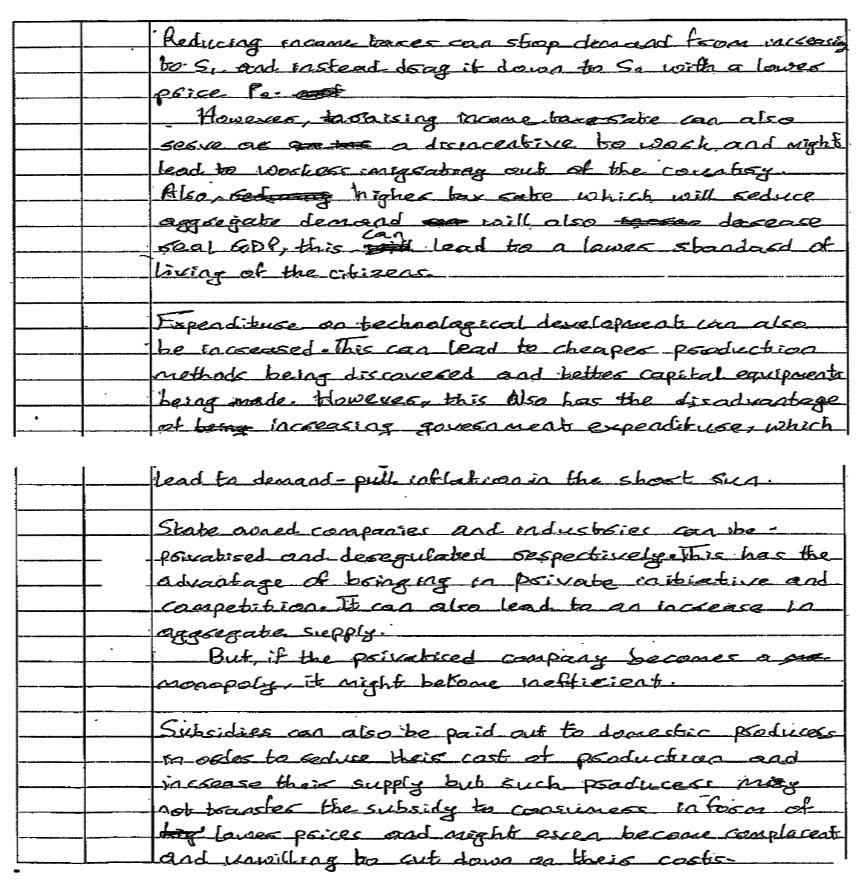 Reducing income taxes can stop demand from increasing
to S₁, and instead drag it down to S₂ with a lower
price P₂.
However, raising income tax rate can also
serve as a disincentive to work and might
lead to workers migrating out of the country.
Also, higher tax rate which will reduce
aggregate demand will also decrease
real GDP, this can lead to a lower standard of
living of the citizens.
Expenditure on technological development can also
be increased. This can lead to cheaper production
methods being discovered and better capital equipments
being made. However, this also has the disadvantage
of increasing government expenditure, which
lead to demand-pull inflation in the short run.
State owned companies and industries can be
privatised and deregulated respectively. This has the
advantage of bringing in private initiative and
competition. It can also lead to an increase in
aggregate supply.
But, if the privatised company becomes a
monopoly, it might become inefficient.
Subsidies can also be paid out to domestic producers
in order to reduce their cost of production and
increase their supply but such producers may
not transfer the subsidy to consumers in form of
lower prices and might even become complacent
and unwilling to cut down on their costs.